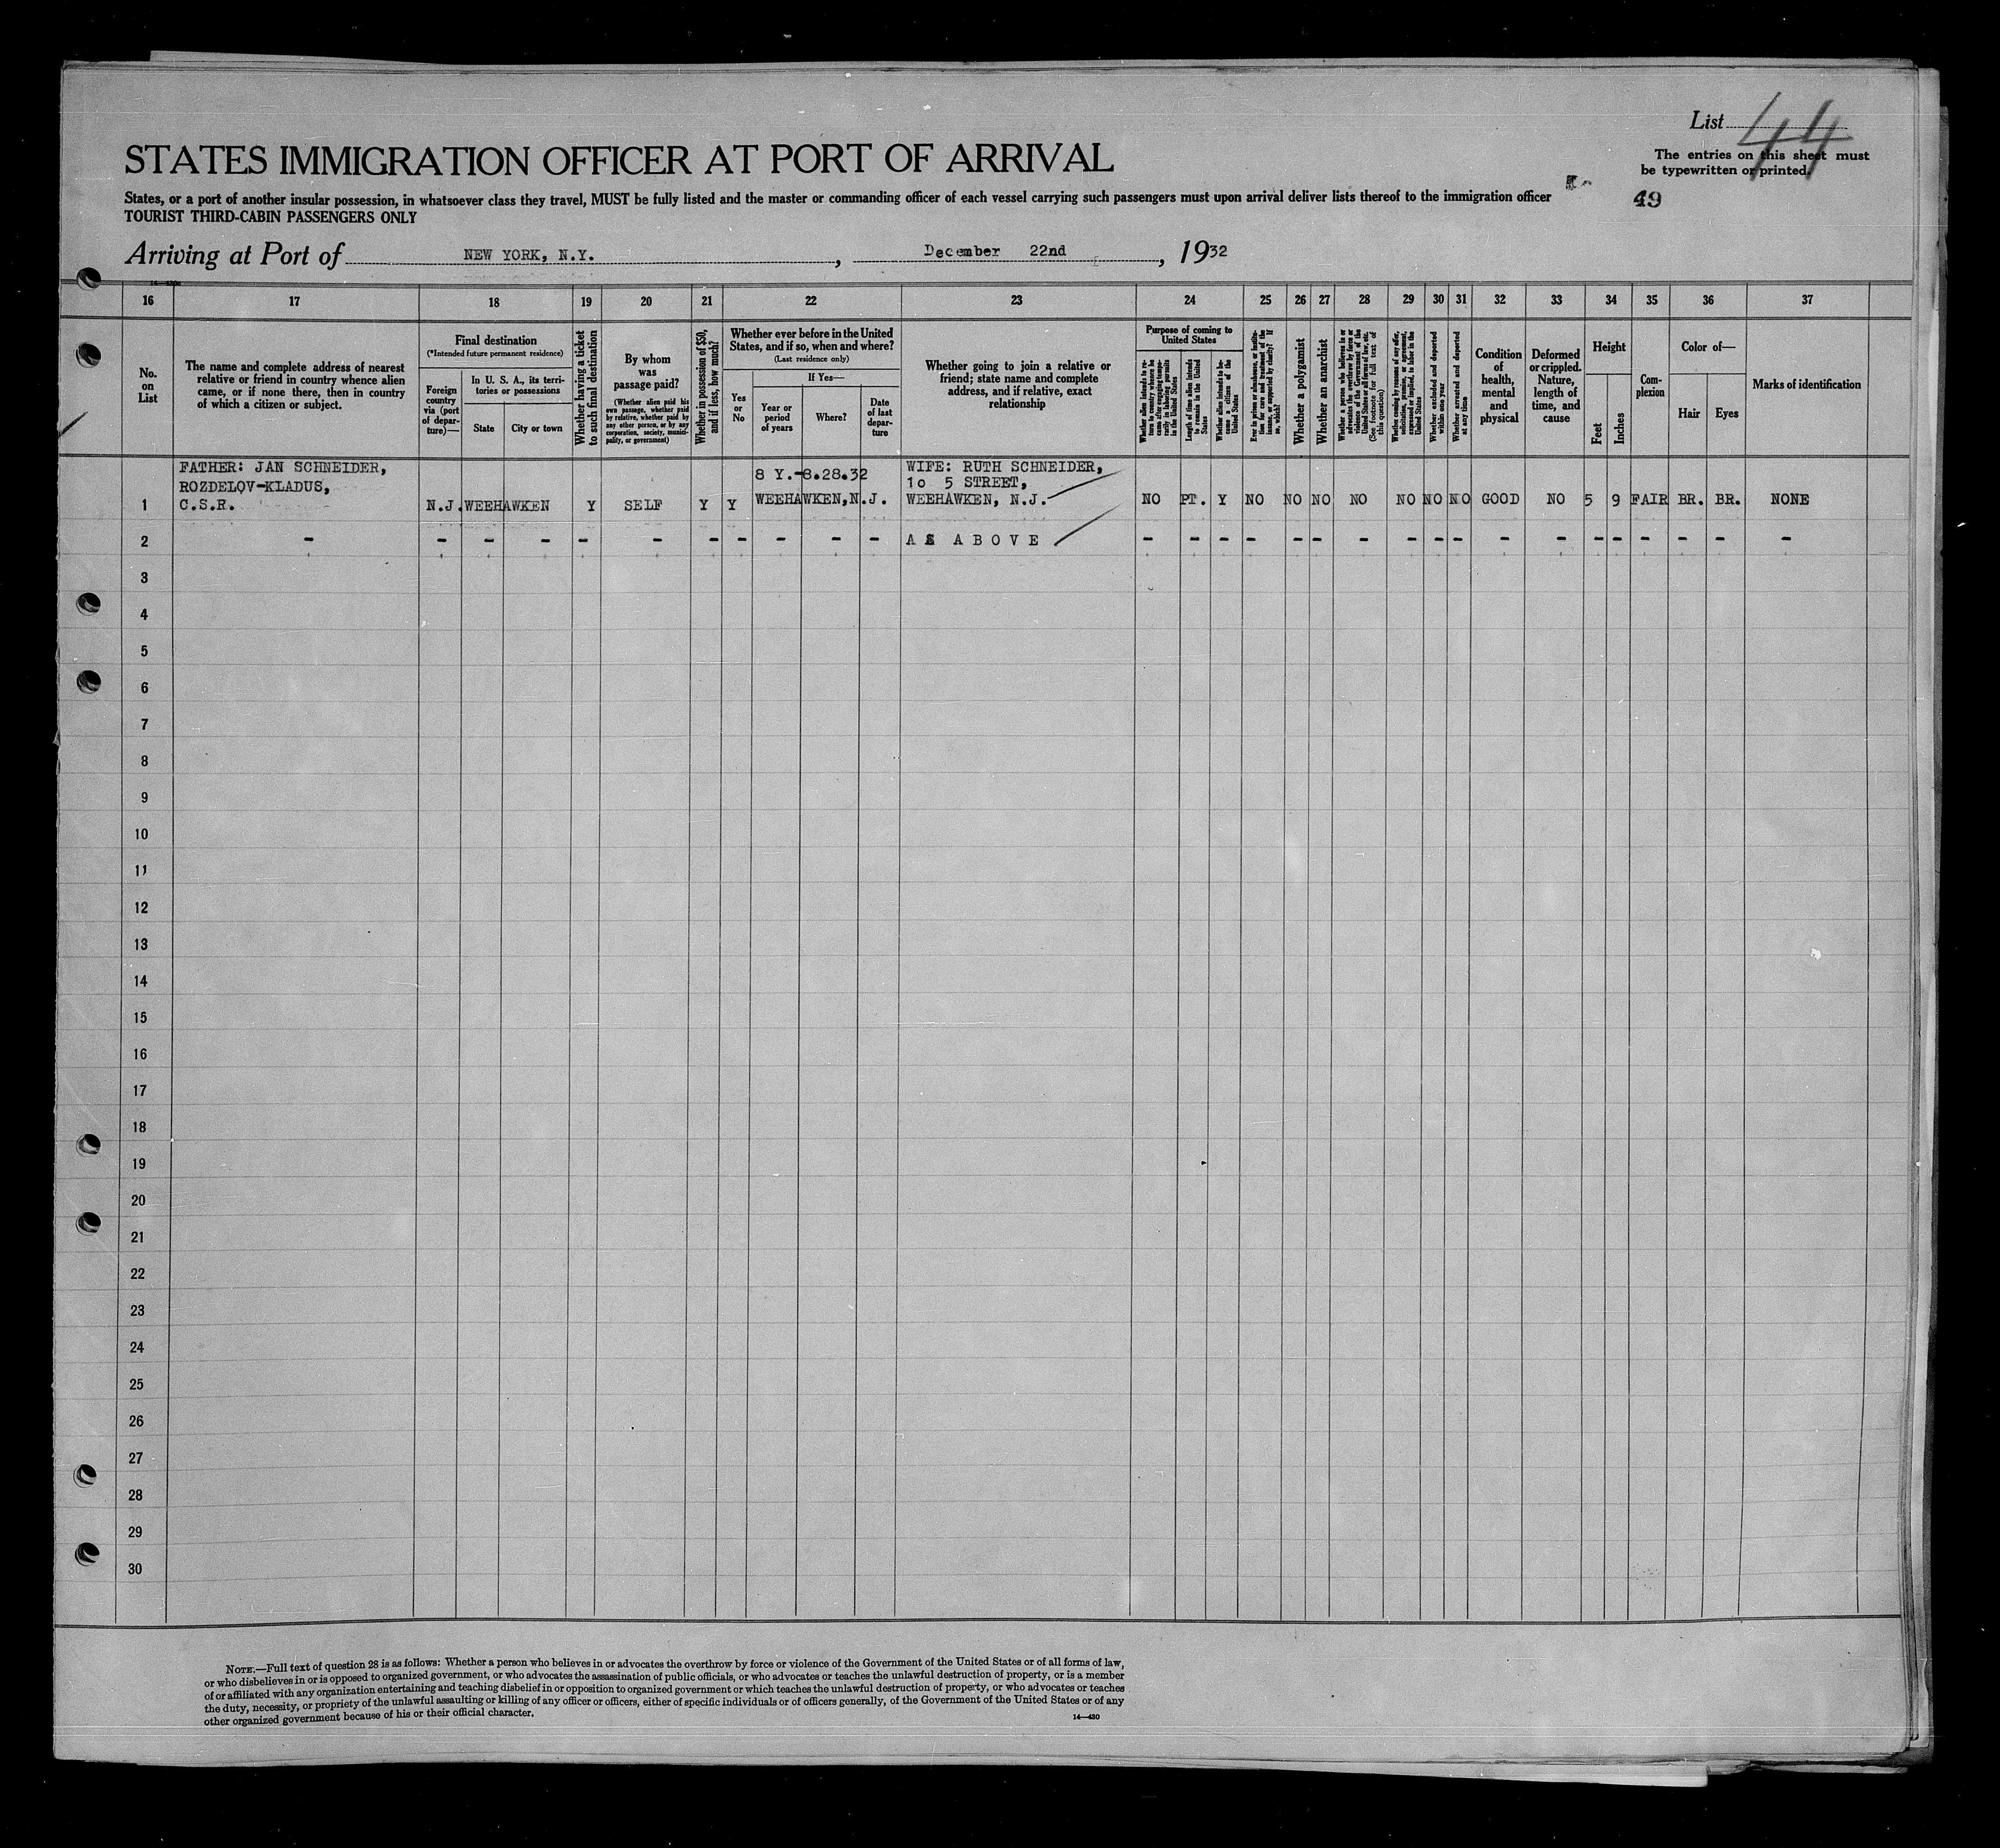 List 44
The entries on this sheet must
be typewritten or printed.
49
STATES IMMIGRATION OFFICER AT PORT OF ARRIVAL
States, or a port of another insular possession, in whatsoever class they travel, MUST be fully listed and the master or commanding officer of each vessel carrying such passengers must upon arrival deliver lists thereof to the immigration officer
TOURIST THIRD-CABIN PASSENGERS ONLY
Arriving at Port of NEW YORK, N.Y. , December 22nd , 1932
16 17 18 19 20 21 22 23 24 25 26 27 28 29 30 31 32 33 34 35 36 37
No.
on
List
The name and complete address of nearest
relative or friend in country whence alien
came, or if none there, then in country
of which a citizen or subject.
Final destination
(*Intended future permanent residence)
Foreign
country
via (port
of depar-
ture)—
In U. S. A., its terri-
tories or possessions
State
City or town
Whether having a ticket
to such final destination
By whom
was
passage paid?
(Whether alien paid his
own passage, whether paid
by relative, whether paid by
any other person, or by any
corporation, society, munici-
pality, or government)
Whether in possession of $50,
and if less, how much?
Whether ever before in the United
States, and if so, when and where?
(Last residence only)
Yes
or
No
If Yes—
Year or
period
of years
Where?
Date
of last
depar-
ture
Whether going to join a relative or
friend; state name and complete
address, and if relative, exact
relationship
Purpose of coming to
United States
Whether alien intends to re-
turn to country whence he
came after engaging tempo-
rarily in laboring pursuits
in the United States
Length of time alien intends
to remain in the United
States
Whether alien intends to be-
come a citizen of the
United States
Ever in prison or almshouse, or institu-
tion for care and treatment of the
insane, or supported by charity? If
so, which?
Whether a polygamist
Whether an anarchist
Whether a person who believes in or
advocates the overthrow by force or
violence of the Government of the
United States or all forms of law, etc.
(See footnote for full text of
this question)
Whether coming by reason of any offer,
solicitation, promise, or agreement,
expressed or implied, to labor in the
United States
Whether excluded and deported
within one year
Whether arrested and deported
at any time
Condition
of
health,
mental
and
physical
Deformed
or crippled.
Nature,
length of
time, and
cause
Height
Feet
Inches
Com-
plexion
Color of—
Hair
Eyes
Marks of identification
FATHER: JAN SCHNEIDER,
ROZDELOV-KLADUS,
8 Y.-8.28.32
WIFE: RUTH SCHNEIDER,
10 5 STREET,
1 C.S.R. N.J. WEEHAWKEN Y SELF Y Y WEEHAWKEN,N.J. WEEHAWKEN, N.J. NO PT. Y NO NO NO NO NO NO NO GOOD NO 5 9 FAIR BR. BR. NONE
2 - - - - - - - - - - - AS ABOVE - - - - - - - - - - - - - - - - - -
3
4
5
6
7
8
9
10
11
12
13
14
15
16
17
18
19
20
21
22
23
24
25
26
27
28
29
30
NOTE.—Full text of question 28 is as follows: Whether a person who believes in or advocates the overthrow by force or violence of the Government of the United States or of all forms of law,
or who disbelieves in or is opposed to organized government, or who advocates the assassination of public officials, or who advocates or teaches the unlawful destruction of property, or is a member
of or affiliated with any organization entertaining and teaching disbelief in or opposition to organized government or which teaches the unlawful destruction of property, or who advocates or teaches
the duty, necessity, or propriety of the unlawful assaulting or killing of any officer or officers, either of specific individuals or of officers generally, of the Government of the United States or of any
other organized government because of his or their official character.
14—430